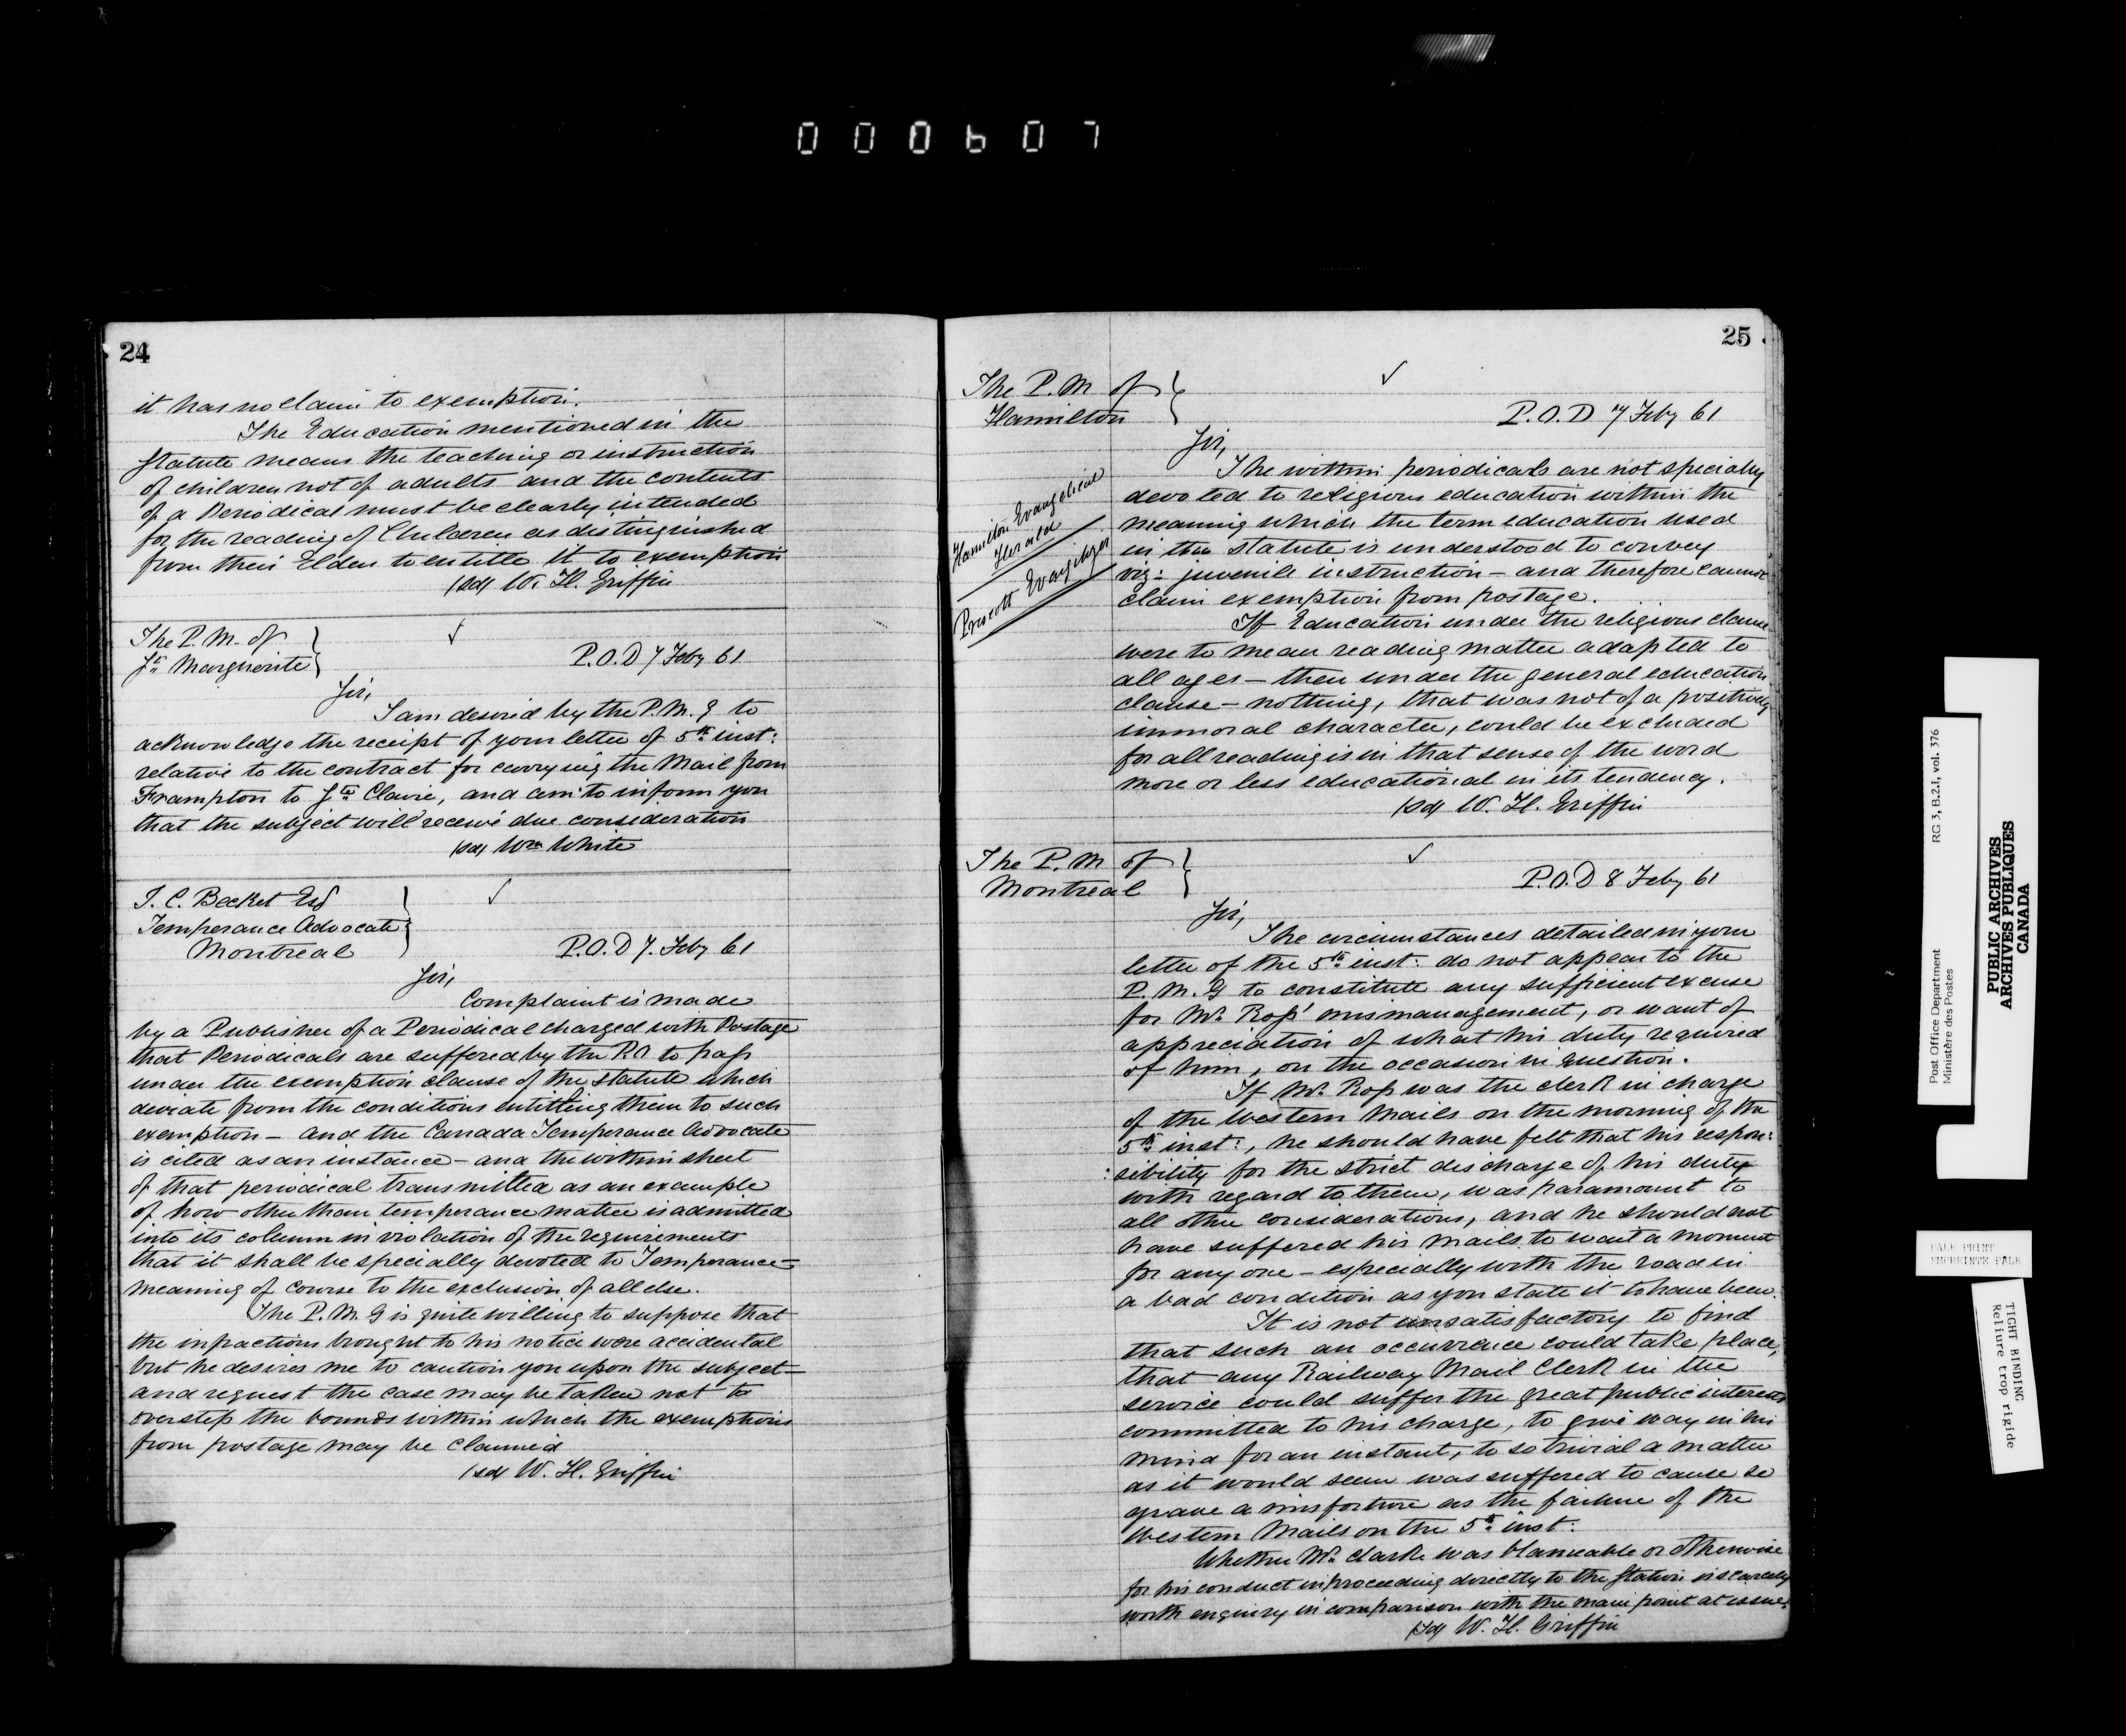 000607
24
it has no claim to exemption.
The Education mentioned in the
Statute means the teaching or instruction
of children not of adults and the contents
of a Periodical must be clearly intended
for the reading of Children as distinguished
from their Elders to entitle it to exemption
(sd) W. H. Griffin
The P. M. of
Ste Marguerite
✓
P.O.D 7 Feby 61
Sir,
I am desired by the P. M. G to
acknowledge the receipt of your letter of 5th inst:
relative to the contract for carrying the Mail from
Frampton to Ste Claire, and am to inform you
that the subject will receive due consideration
(sd) Wm White
J. C. Becket Esq
Temperance Advocate
Montreal
✓
P.O.D 7. Feby 61
Sir,
Complaint is made
by a Publisher of a Periodical charged with Postage
that Periodicals are suffered by the P.O to pass
under the exemption clause of the statute which
deviate from the conditions entitling them to such
exemption – and the Canada Temperance Advocate
is cited as an instance – and the within sheet
of that periodical transmitted as an example
of how other than temperance matter is admitted
into its column in violation of the requirements
that it shall be specially devoted to Temperance –
meaning of course to the exclusion of all else.
The P. M. G is quite willing to suppose that
the infractions brought to his notice were accidental
but he desires me to caution you upon the subject –
and request the case may be taken not to
overstep the bounds within which the exemptions
from postage may be claimed
(sd) W. H. Griffin
25
The P. M of
Hamilton
✓
P.O.D 7 Feby 61
Sir,
Hamilton Evangelical
Herald
Prescott Evangelizer
The within periodicals are not specially
devoted to religious education within the
meaning which the term education used
in the statute is understood to convey
viz: juvenile instruction – and therefore cannot
claim exemption from postage.
If Education under the religious clause
were to mean reading matter adapted to
all ages – then under the general education
clause – nothing, that was not of a positively
immoral character, could be excluded
for all reading is in that sense of the word
more or less educational in its tendency.
(sd) W. H. Griffin
The P. M of
Montreal
✓
P.O.D 8 Feby 61
Sir,
The circumstances detailed in your
letter of the 5th inst: do not appear to the
P. M. G to constitute any sufficient excuse
for Mr. Ross' mismanagement, or want of
appreciation of what his duty required
of him, on the occasion in question.
If Mr. Ross was the clerk in charge
of the Western Mails on the morning of the
5th inst:, he should have felt that his respon:
:sibility for the strict discharge of his duty
with regard to them, was paramount to
all other considerations, and he should not
have suffered his mails to wait a moment
for any one – especially with the road in
a bad condition as you state it to have been.
It is not unsatisfactory to find
that such an occurrence could take place,
that any Railway Mail Clerk in the
service could suffer the great public interests
committed to his charge, to give way in his
mind for an instant, to so trivial a matter
as it would seem was suffered to cause so
grave a misfortune as the failure of the
Western Mails on the 5th inst:
Whether Mr. Clarke was blameable or otherwise
for his conduct in proceeding directly to the Station is scarcely
worth enquiry in comparison with the main point at issue.
(sd) W. H. Griffin
Post Office Department
Ministère des Postes
RG 3, B.2.1, vol. 376
PUBLIC ARCHIVES
ARCHIVES PUBLIQUES
CANADA
PALE PRINT
IMPRIMÉE PALE
TIGHT BINDING
Reliure trop rigide